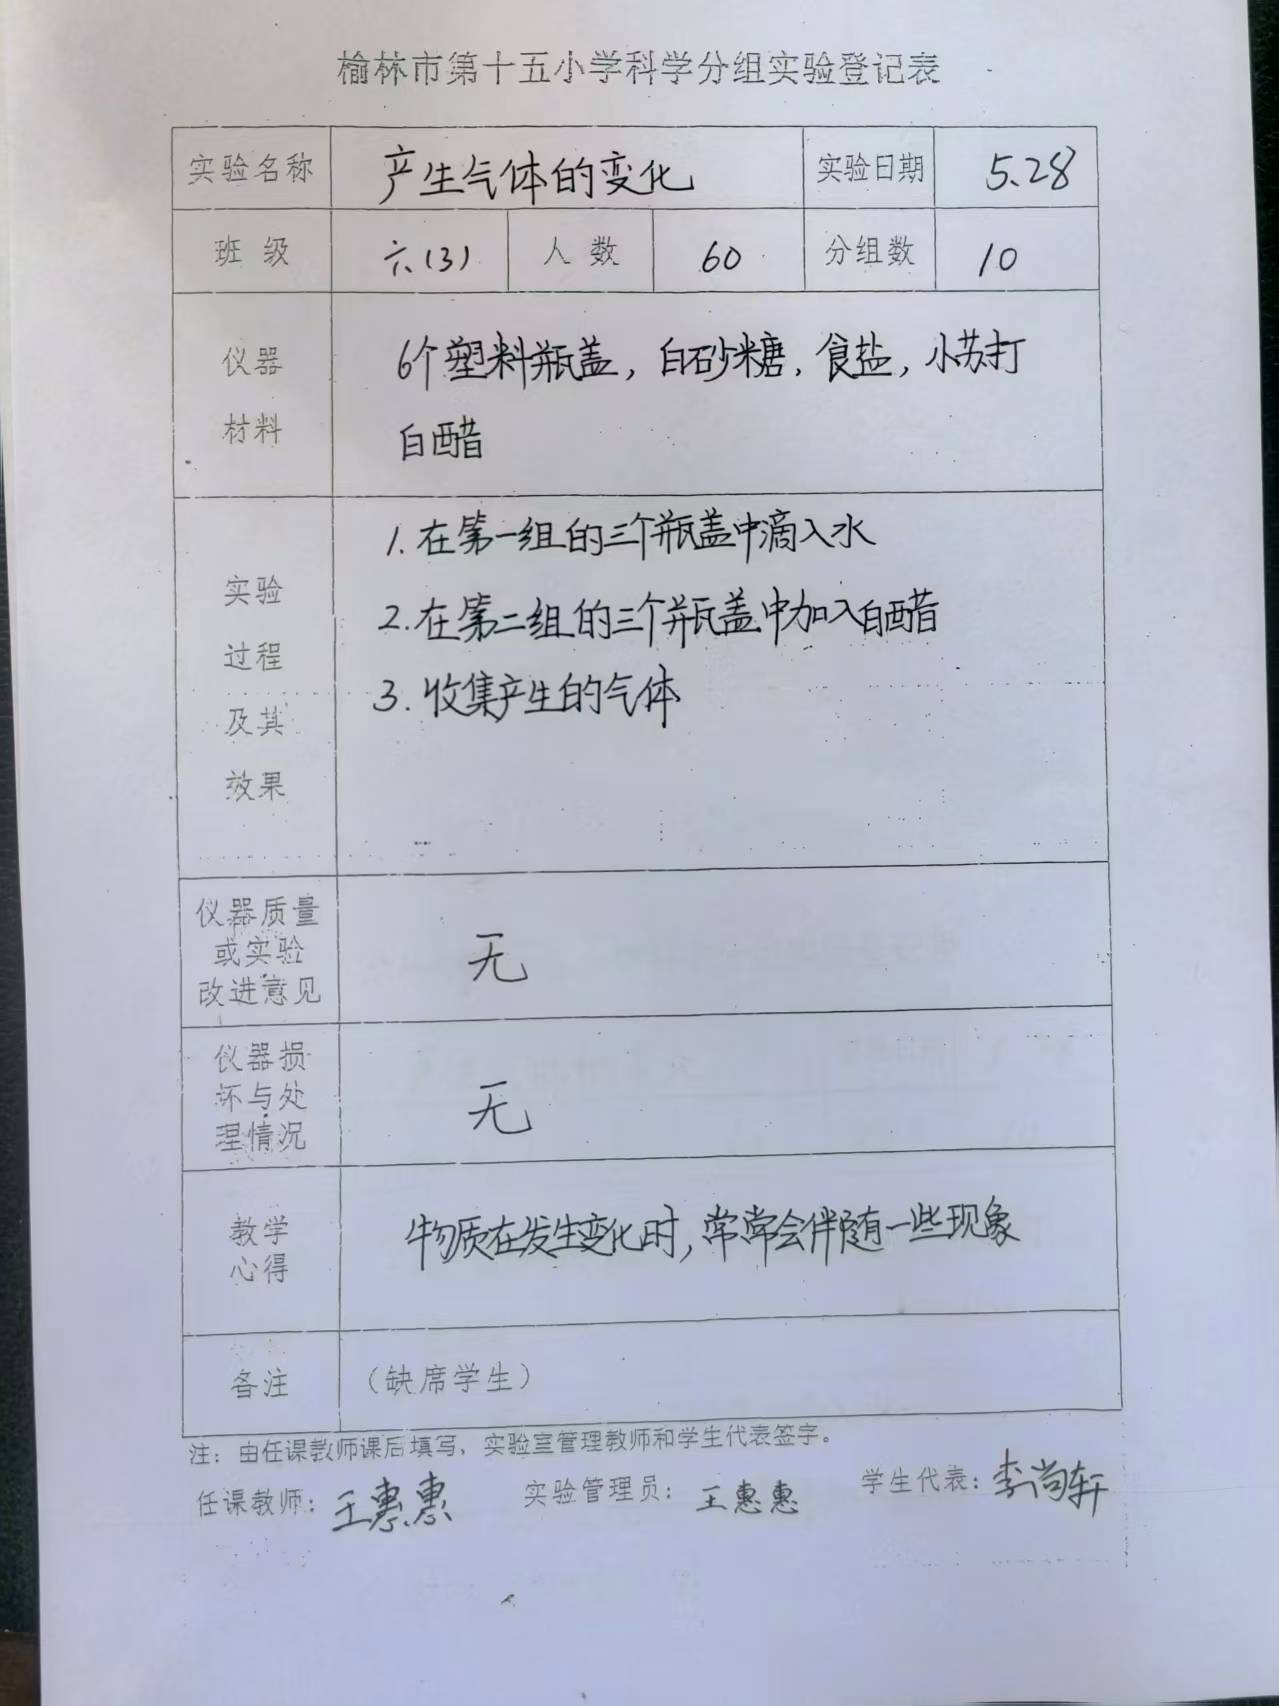 榆林市第十五小学科学分组实验登记表
实验名称 产生气体的变化 实验日期 5.28
班级 六(3) 人数 60 分组数 10
仪器材料 6个塑料瓶盖，白砂糖，食盐，小苏打
白醋
实验过程及其效果
1.在第一组的三个瓶盖中滴入水
2.在第二组的三个瓶盖中加入白醋
3.收集产生的气体
仪器质量或实验改进意见 无
仪器损坏与处理情况 无
教学心得 物质在发生变化时，常常会伴随有一些现象
备注 （缺席学生）
注：由任课教师课后填写，实验室管理教师和学生代表签字。
任课教师：王惠惠 实验管理员：王惠惠 学生代表：李尚轩